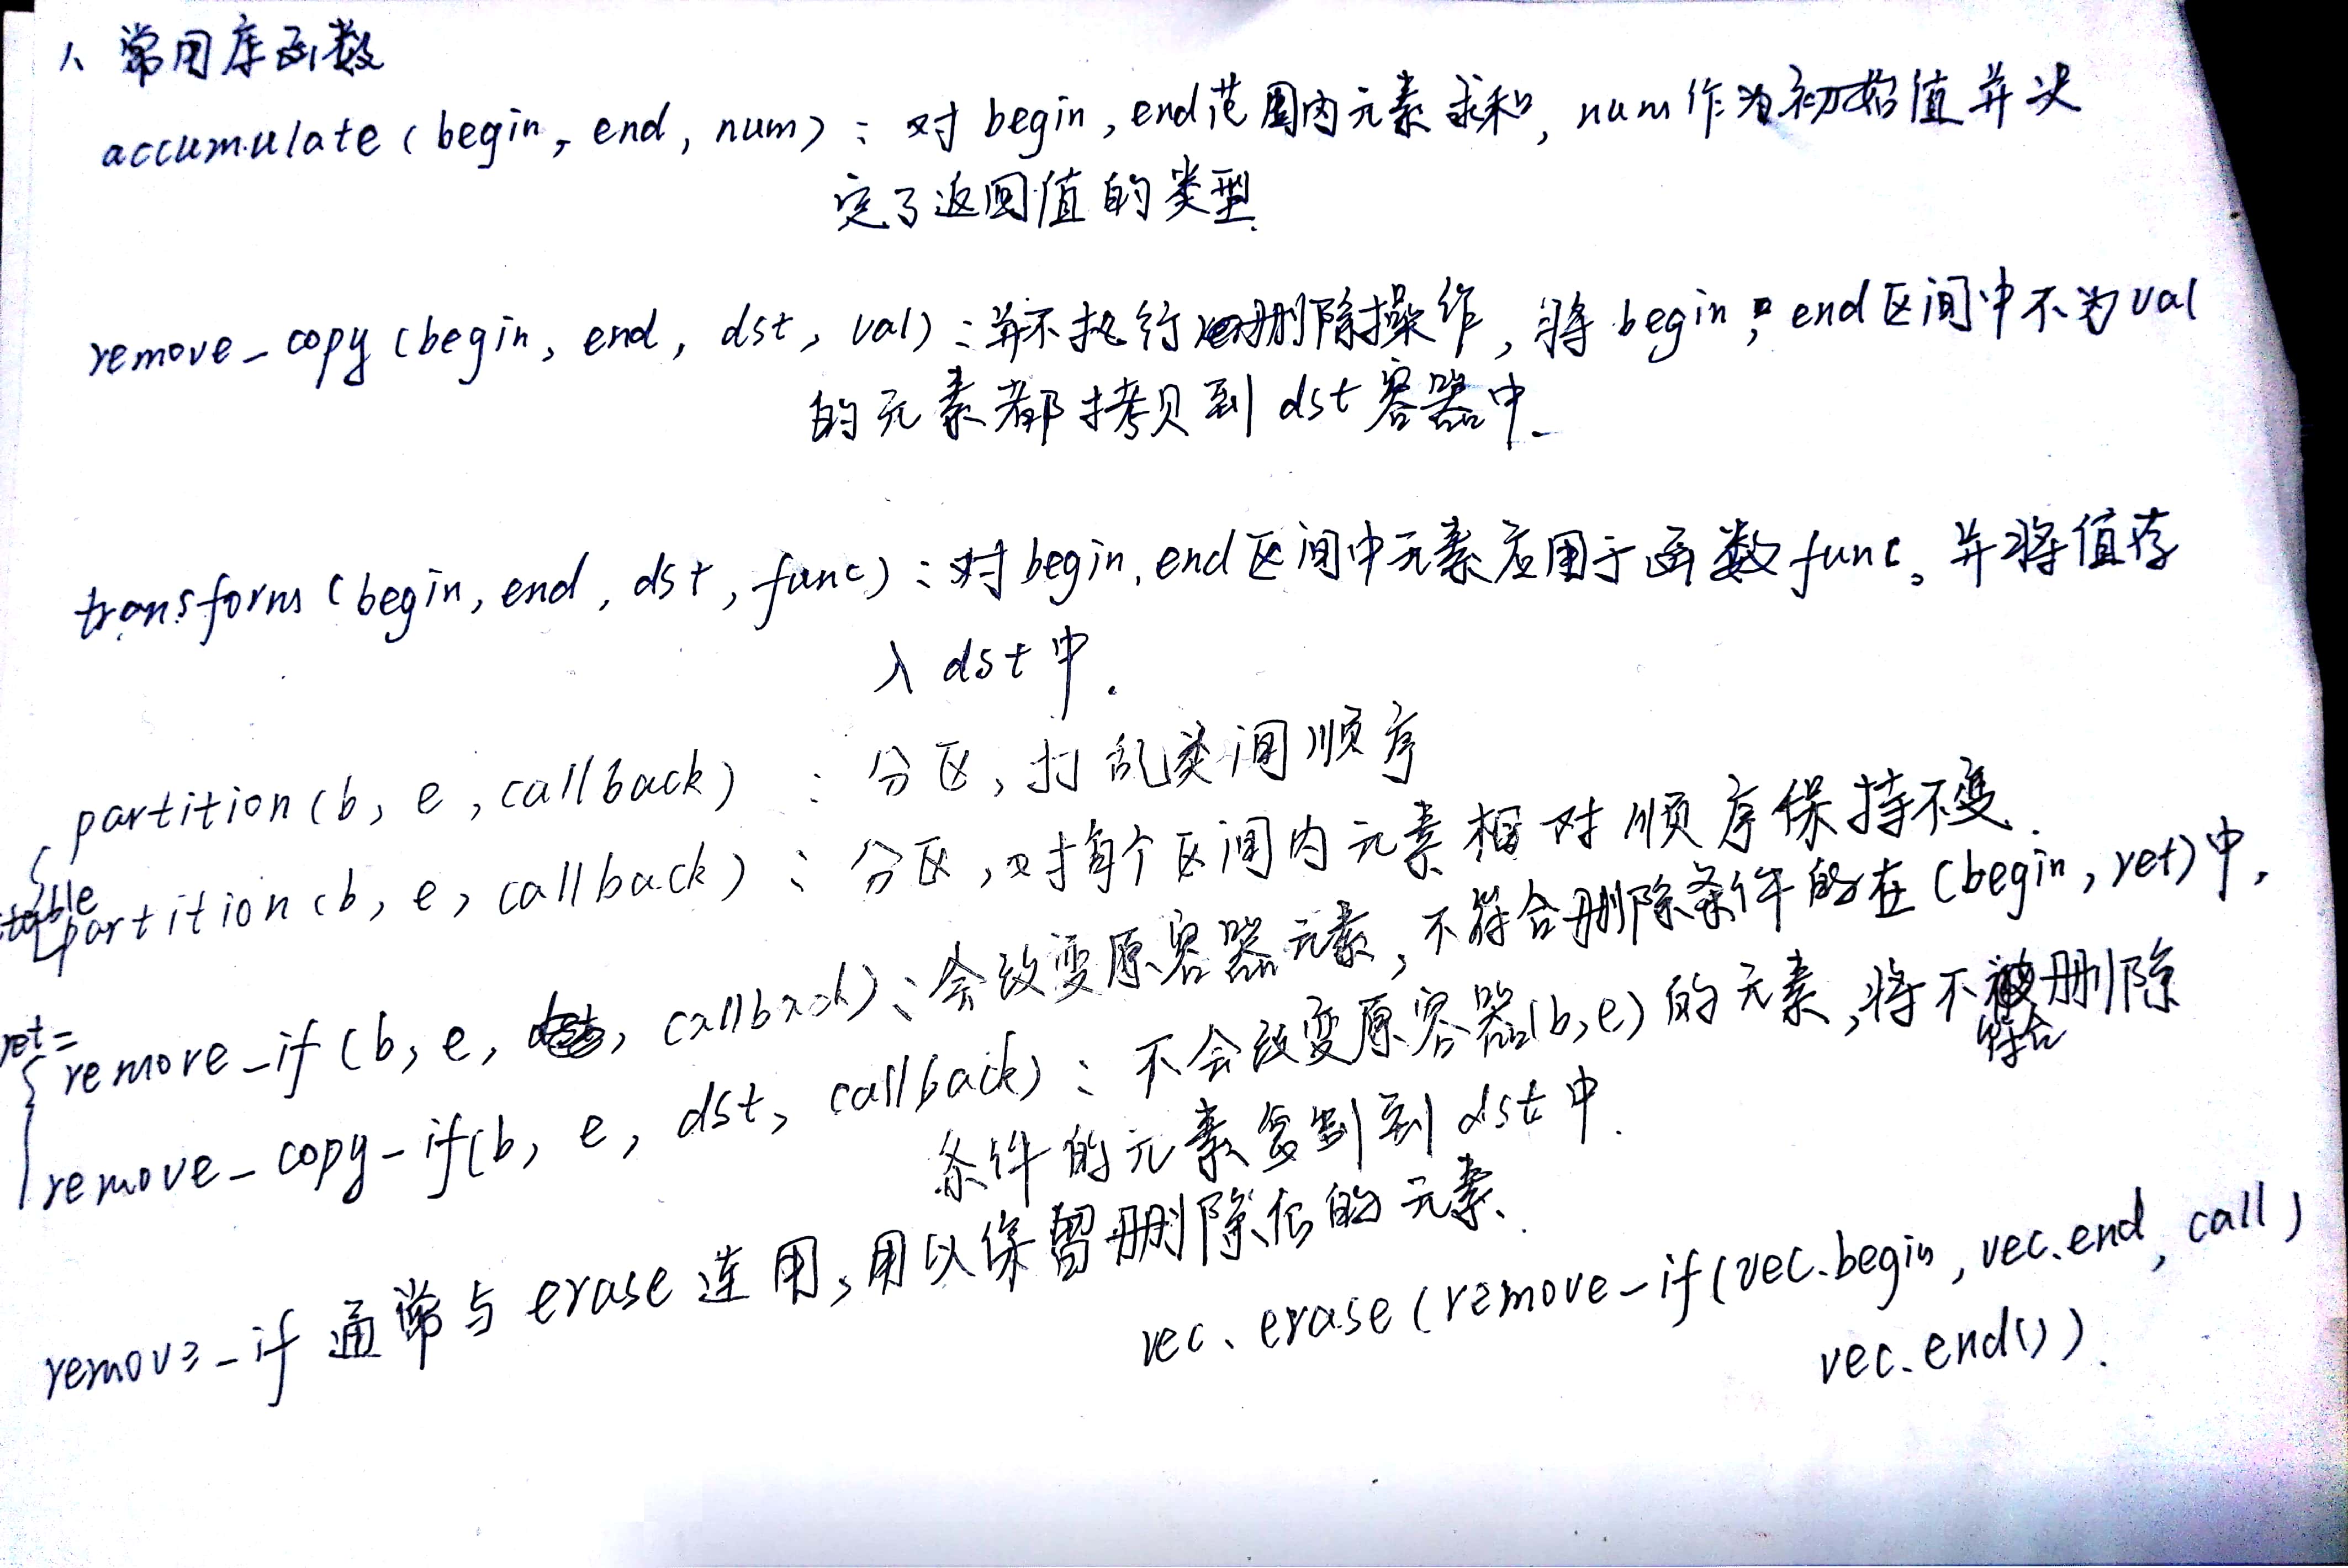 1、常用库函数
accumulate(begin, end, num)：对begin,end范围内元素求和, num作为初始值并决
定了返回值的类型.
remove_copy(begin, end, dst, val)：并不执行删除操作, 将begin, end区间中不为val
的元素都拷贝到dst容器中.
transform(begin, end, dst, func)：对begin,end区间中元素应用于函数func。并将值存
入dst中.
partition(b, e, callback)：分区, 打乱类间顺序
stable partition(b, e, callback)：分区,对每个区间内元素相对顺序保持不变.
ret= remove_if(b, e, callback)：会改变原容器元素, 不符合删除条件的在(begin, ret)中,
remove_copy_if(b, e, dst, callback)：不会改变原容器(b,e)的元素,将不符合删除
条件的元素复制到dst中.
remove_if 通常与erase连用,用以保留删除后的元素.
vec.erase(remove_if(vec.begin, vec.end, call)
vec.end()).